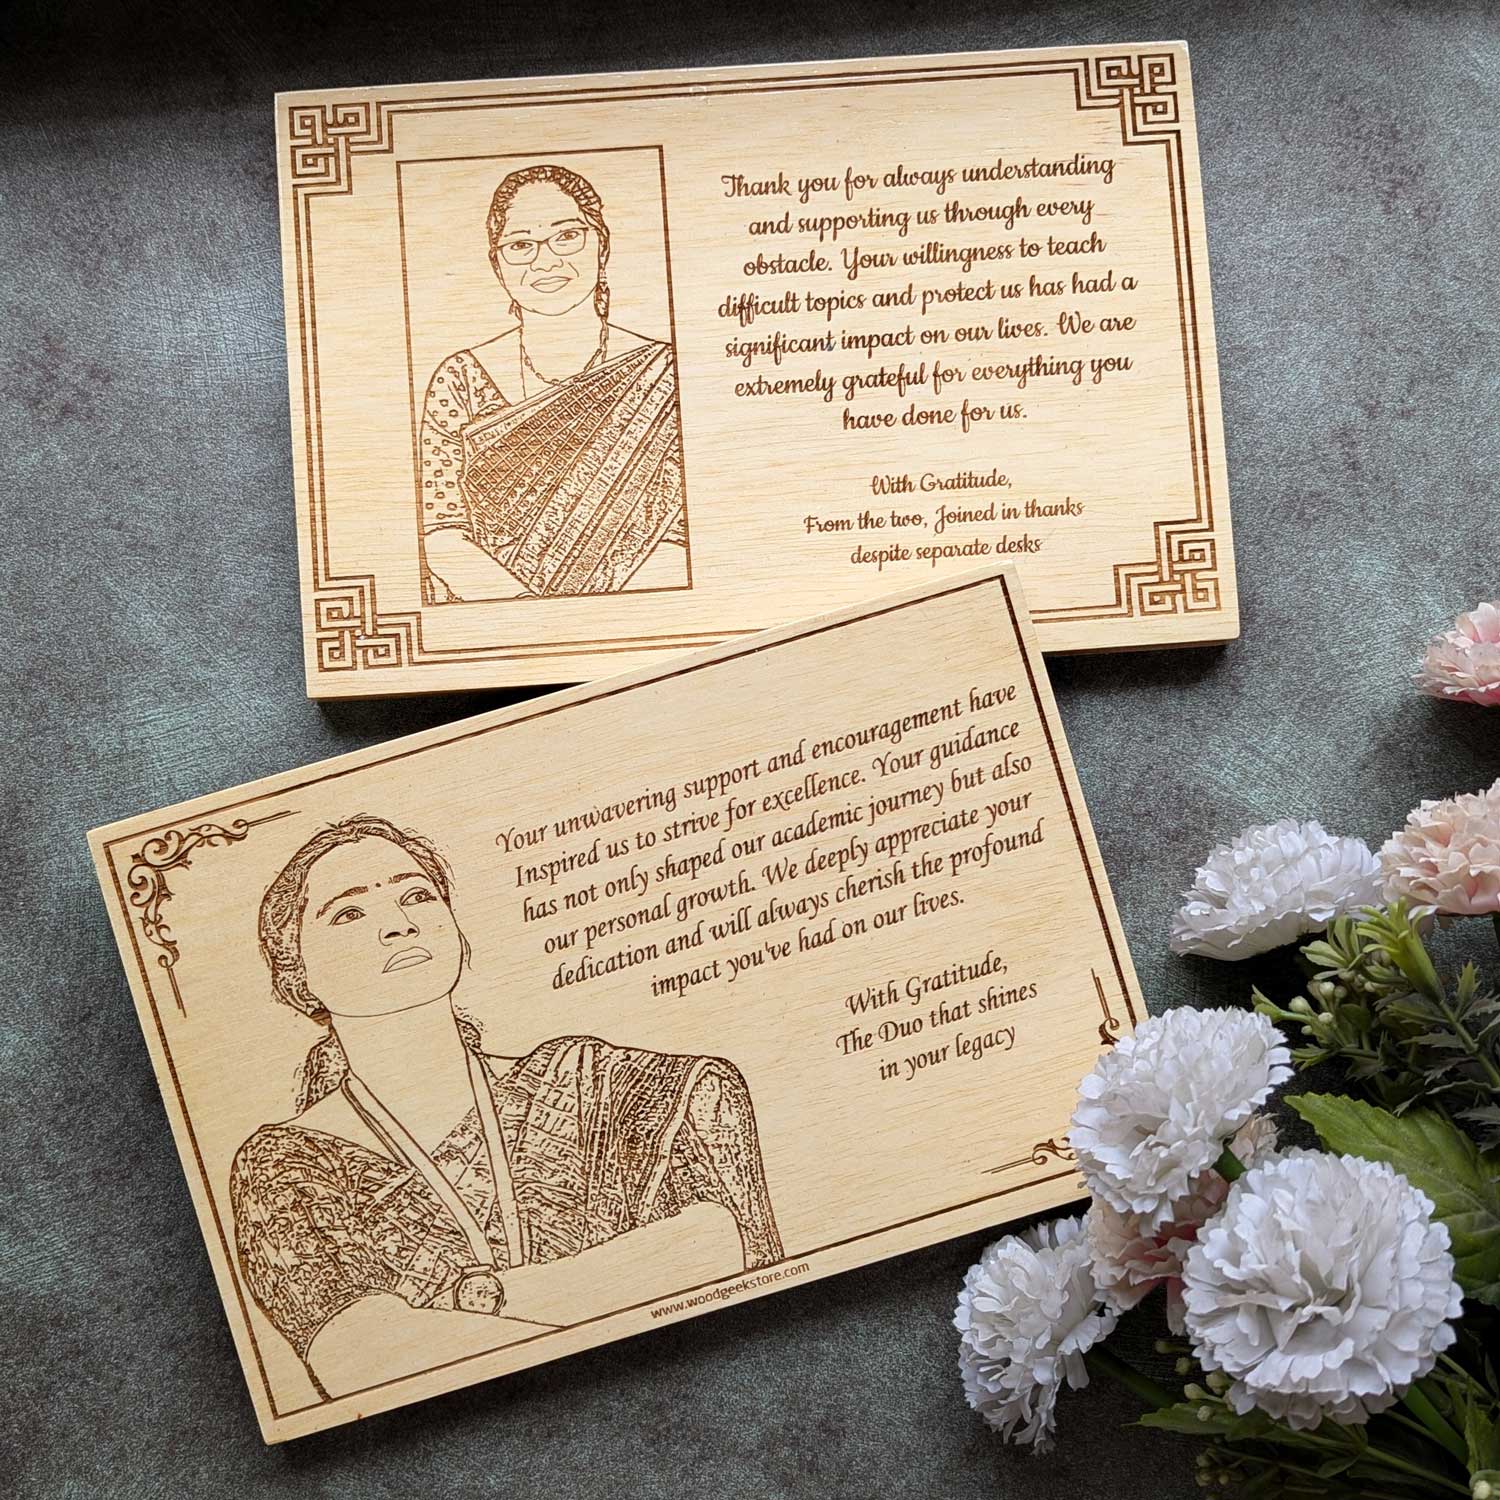 Thank you for always understanding
and supporting us through every
obstacle. Your willingness to teach
difficult topics and protect us has had a
significant impact on our lives. We are
extremely grateful for everything you
have done for us.
With Gratitude,
From the two, Joined in thanks
despite separate desks
Your unwavering support and encouragement have
Inspired us to strive for excellence. Your guidance
has not only shaped our academic journey but also
our personal growth. We deeply appreciate your
dedication and will always cherish the profound
impact you've had on our lives.
With Gratitude,
The Duo that shines
in your legacy
www.woodgeekstore.com